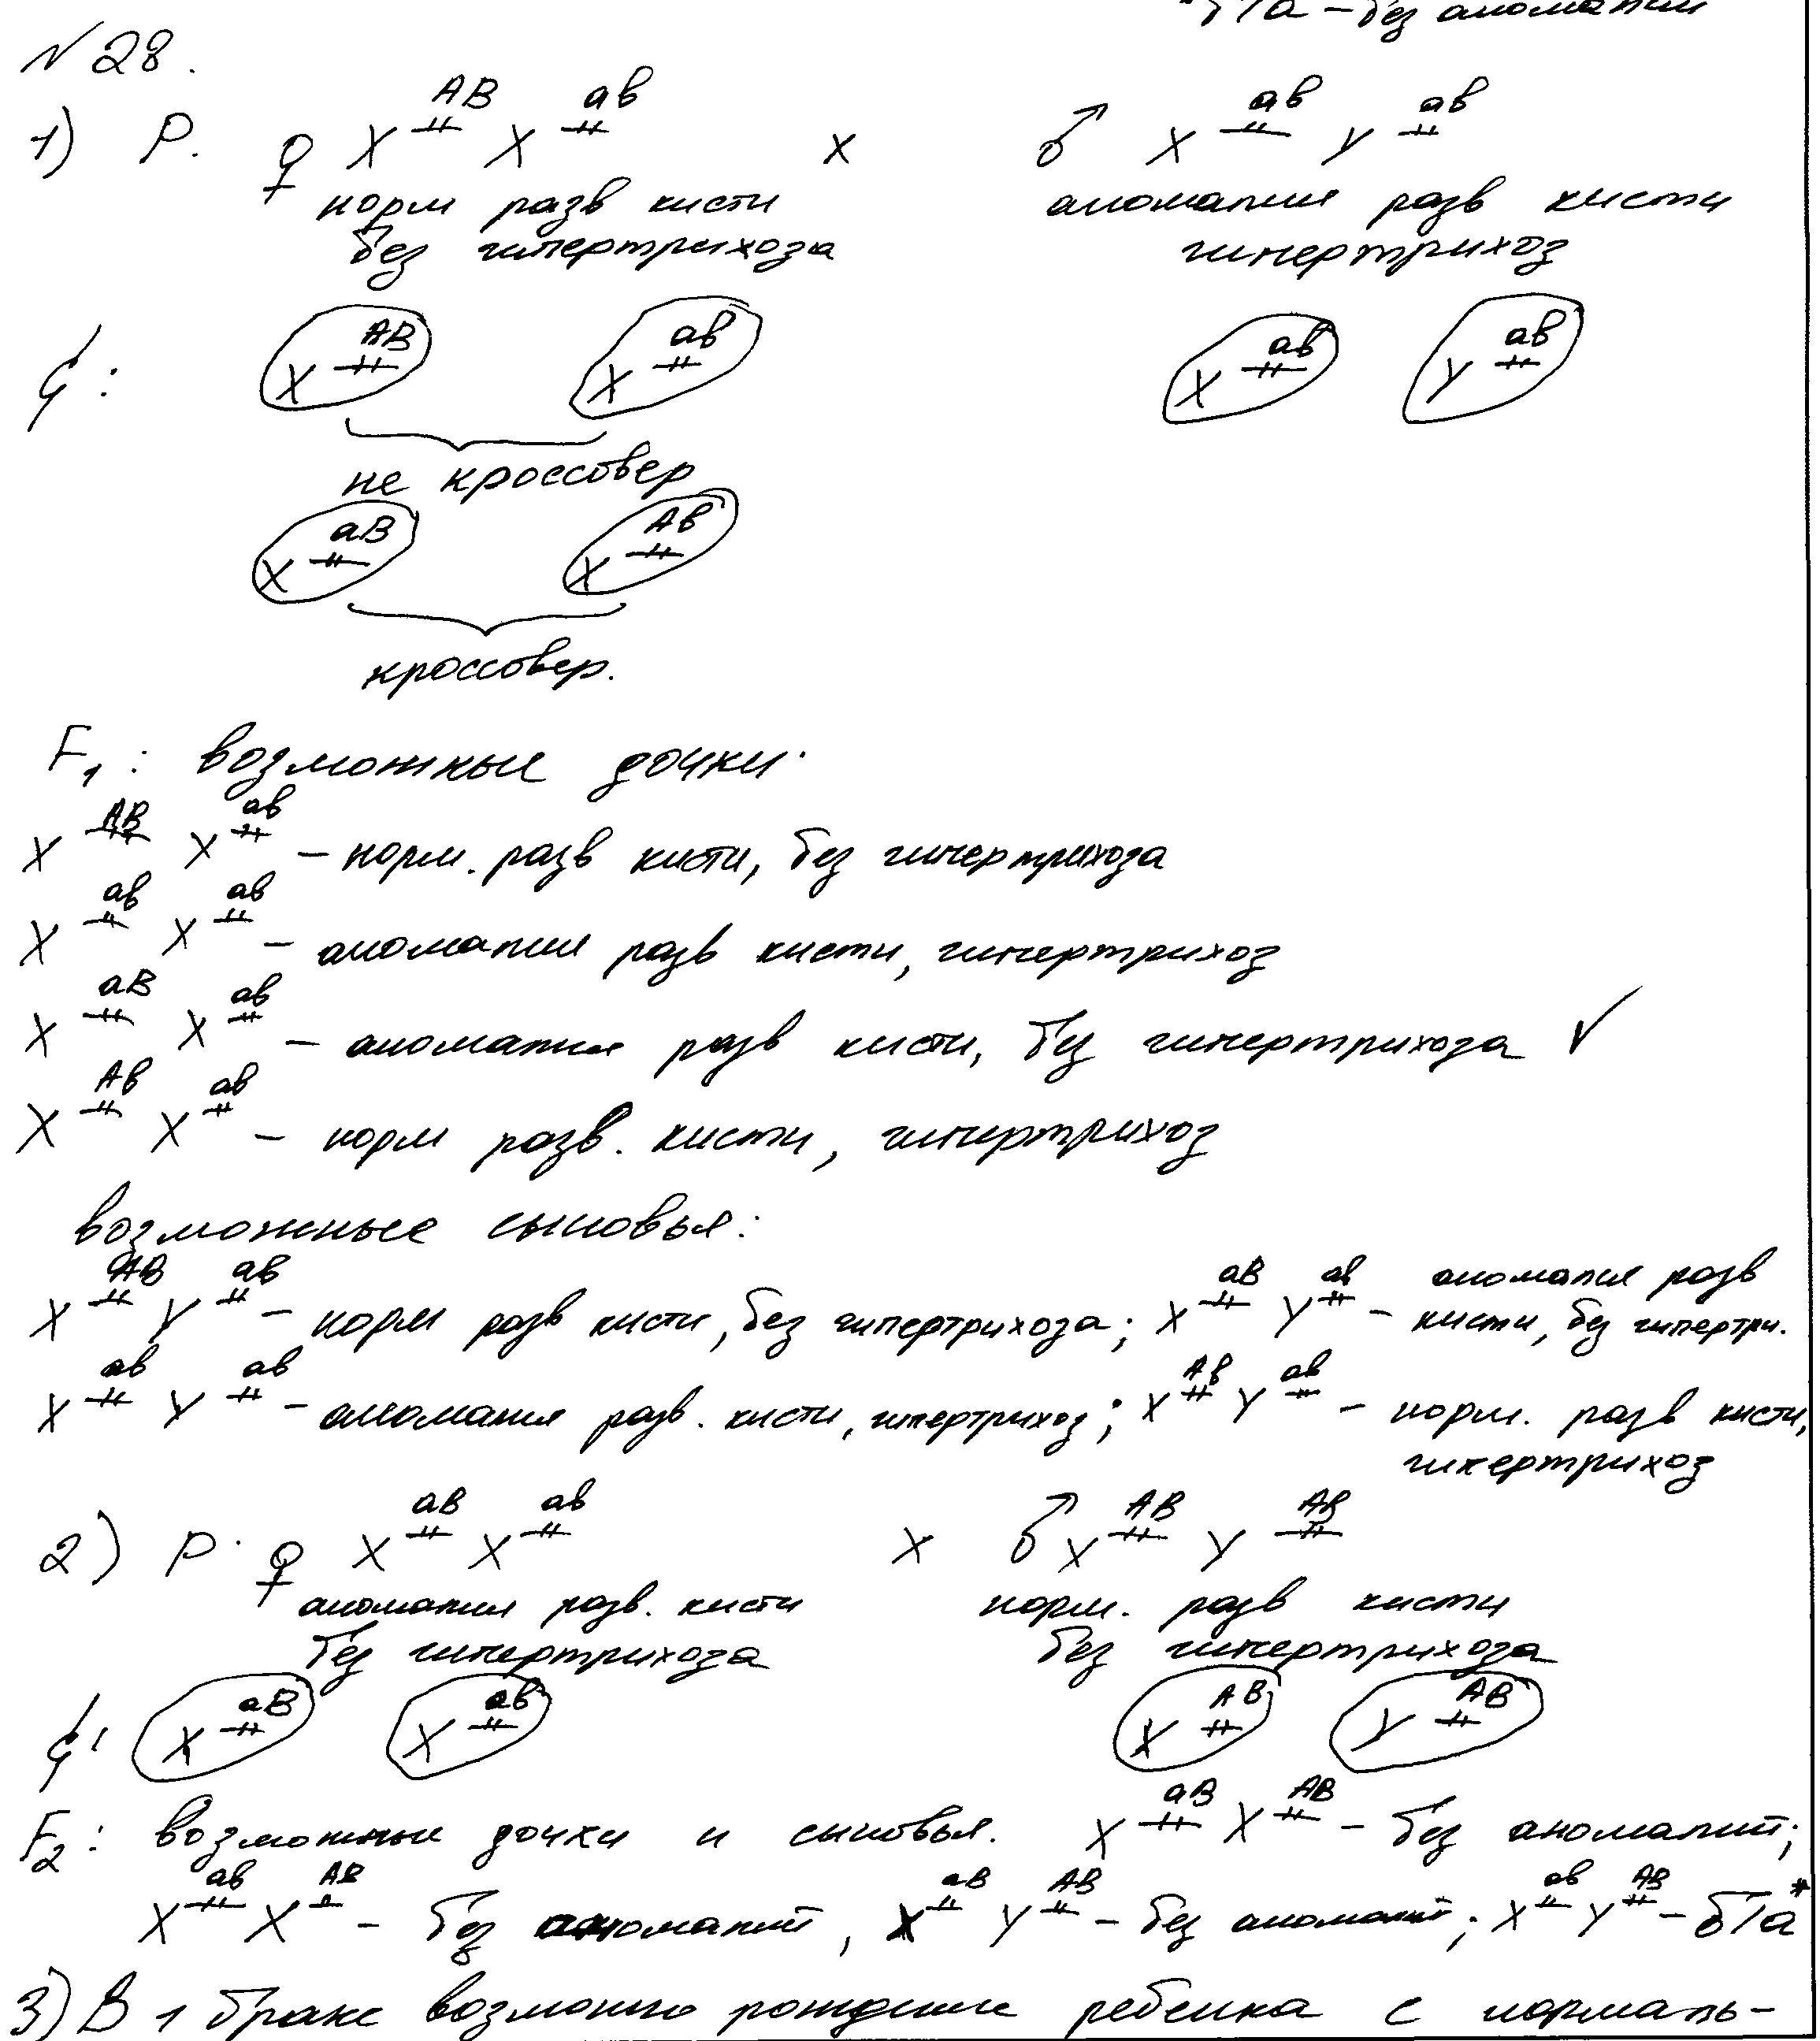 *б/а – без аномалий
№ 28.
1) P. ♀ X^AB X^ab x ♂ X^ab Y^ab
норм разв кисти аномалия разв кисти
без гипертрихоза гипертрихоз
G: X^AB X^ab X^ab Y^ab
не кроссовер
X^aB X^Ab
кроссовер.
F1: возможные дочки:
X^AB X^ab – норм. разв кисти, без гипертрихоза
X^ab X^ab – аномалия разв кисти, гипертрихоз
X^aB X^ab – аномалия разв кисти, без гипертрихоза ✓
X^Ab X^ab – норм разв. кисти, гипертрихоз
возможные сыновья:
X^AB Y^ab – норм разв кисти, без гипертрихоза; X^aB Y^ab – аномалия разв кисти, без гипертри.
X^ab Y^ab – аномалия разв. кисти, гипертрихоз; X^Ab Y^ab – норм. разв кисти,
гипертрихоз
2) P. ♀ X^aB X^ab x ♂ X^AB Y^AB
аномалия разв. кисти норм. разв кисти
без гипертрихоза без гипертрихоза
G: X^aB X^ab X^AB Y^AB
F2: возможные дочки и сыновья. X^aB X^AB – без аномалий;
X^ab X^AB – без аномалий, X^aB Y^AB – без аномалий; X^ab Y^AB – б/а*
3) В 1 браке возможно рождение ребенка с нормаль-